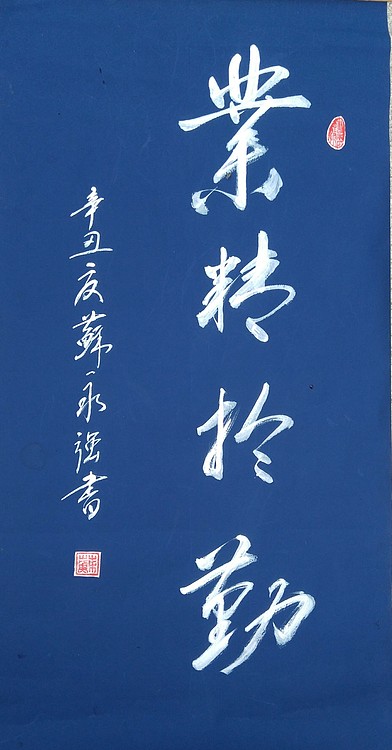 業精於勤
辛丑夏蘇永強書